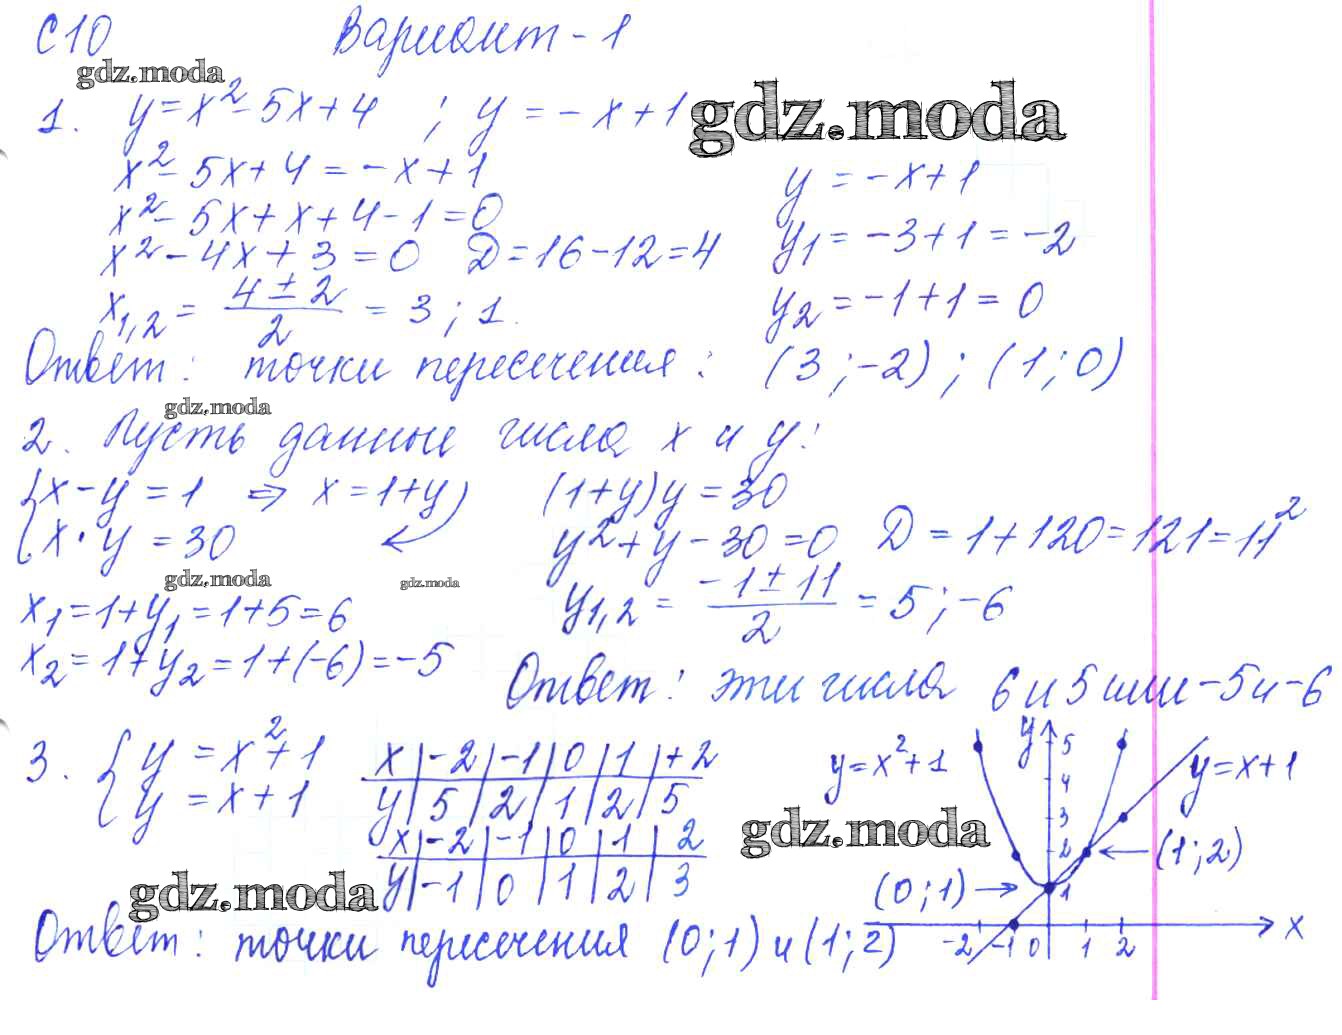 С10 Вариант - 1
gdz.moda
1. y = x² - 5x + 4 ; y = -x + 1
gdz.moda
x² - 5x + 4 = -x + 1
x² - 5x + x + 4 - 1 = 0
x² - 4x + 3 = 0 D = 16 - 12 = 4
x₁,₂ = (4 ± 2)/2 = 3 ; 1.
y = -x + 1
y₁ = -3 + 1 = -2
y₂ = -1 + 1 = 0
Ответ: точки пересечения: (3 ; -2) ; (1 ; 0)
gdz.moda
2. Пусть данные числа x и y:
{x - y = 1 ⇒ x = 1 + y
{x · y = 30
(1 + y) y = 30
y² + y - 30 = 0 D = 1 + 120 = 121 = 11²
y₁,₂ = (-1 ± 11)/2 = 5 ; -6
gdz.moda gdz.moda
x₁ = 1 + y₁ = 1 + 5 = 6
x₂ = 1 + y₂ = 1 + (-6) = -5
Ответ: эти числа 6 и 5 или -5 и -6
3. { y = x² + 1
{ y = x + 1
x | -2 | -1 | 0 | 1 | +2
y | 5 | 2 | 1 | 2 | 5
x | -2 | -1 | 0 | 1 | 2
y | -1 | 0 | 1 | 2 | 3
y = x² + 1
y
5
4
3
2
1
y = x + 1
gdz.moda
(1 ; 2)
(0 ; 1)
-2 -1 0 1 2 x
gdz.moda
Ответ: точки пересечения (0 ; 1) и (1 ; 2)